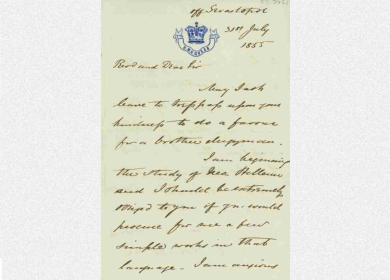 off Sevastopol
31st July
1855
Revd and Dear Sir
May I ask
leave to trespass upon your
kindness to do a favour
for a brother clergyman.
I am beginning
the study of
and I should be extremely
obliged to you if you would
procure for me a few
simple works in that
language - I am anxious